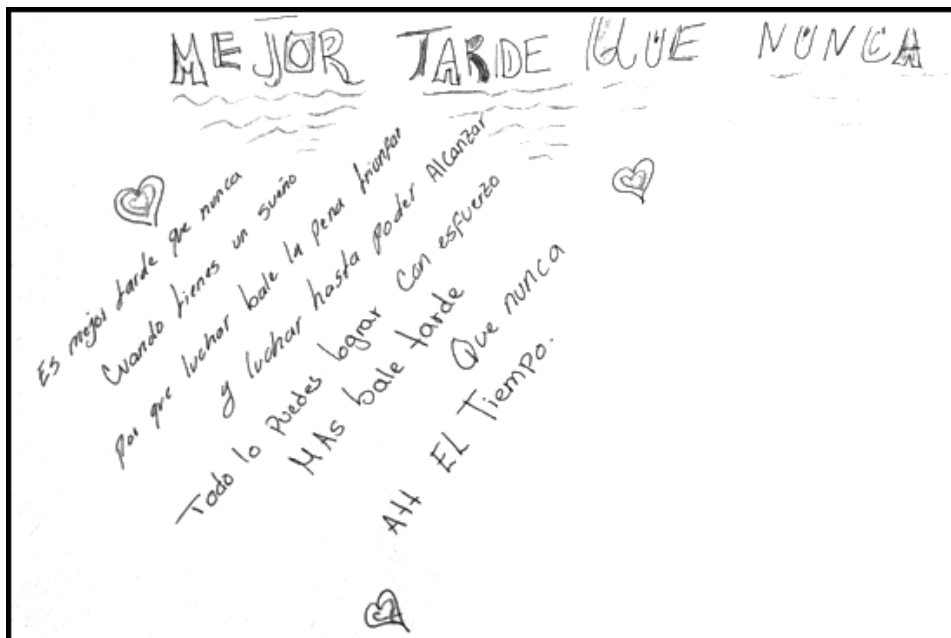 MEJOR TARDE QUE NUNCA
Es mejor tarde que nunca
Cuando tienes un sueño
por que luchar bale la pena triunfar
y luchar hasta poder Alcanzar
Todo lo puedes lograr Con esfuerzo
MAs bale tarde
Que nunca
Att EL Tiempo.